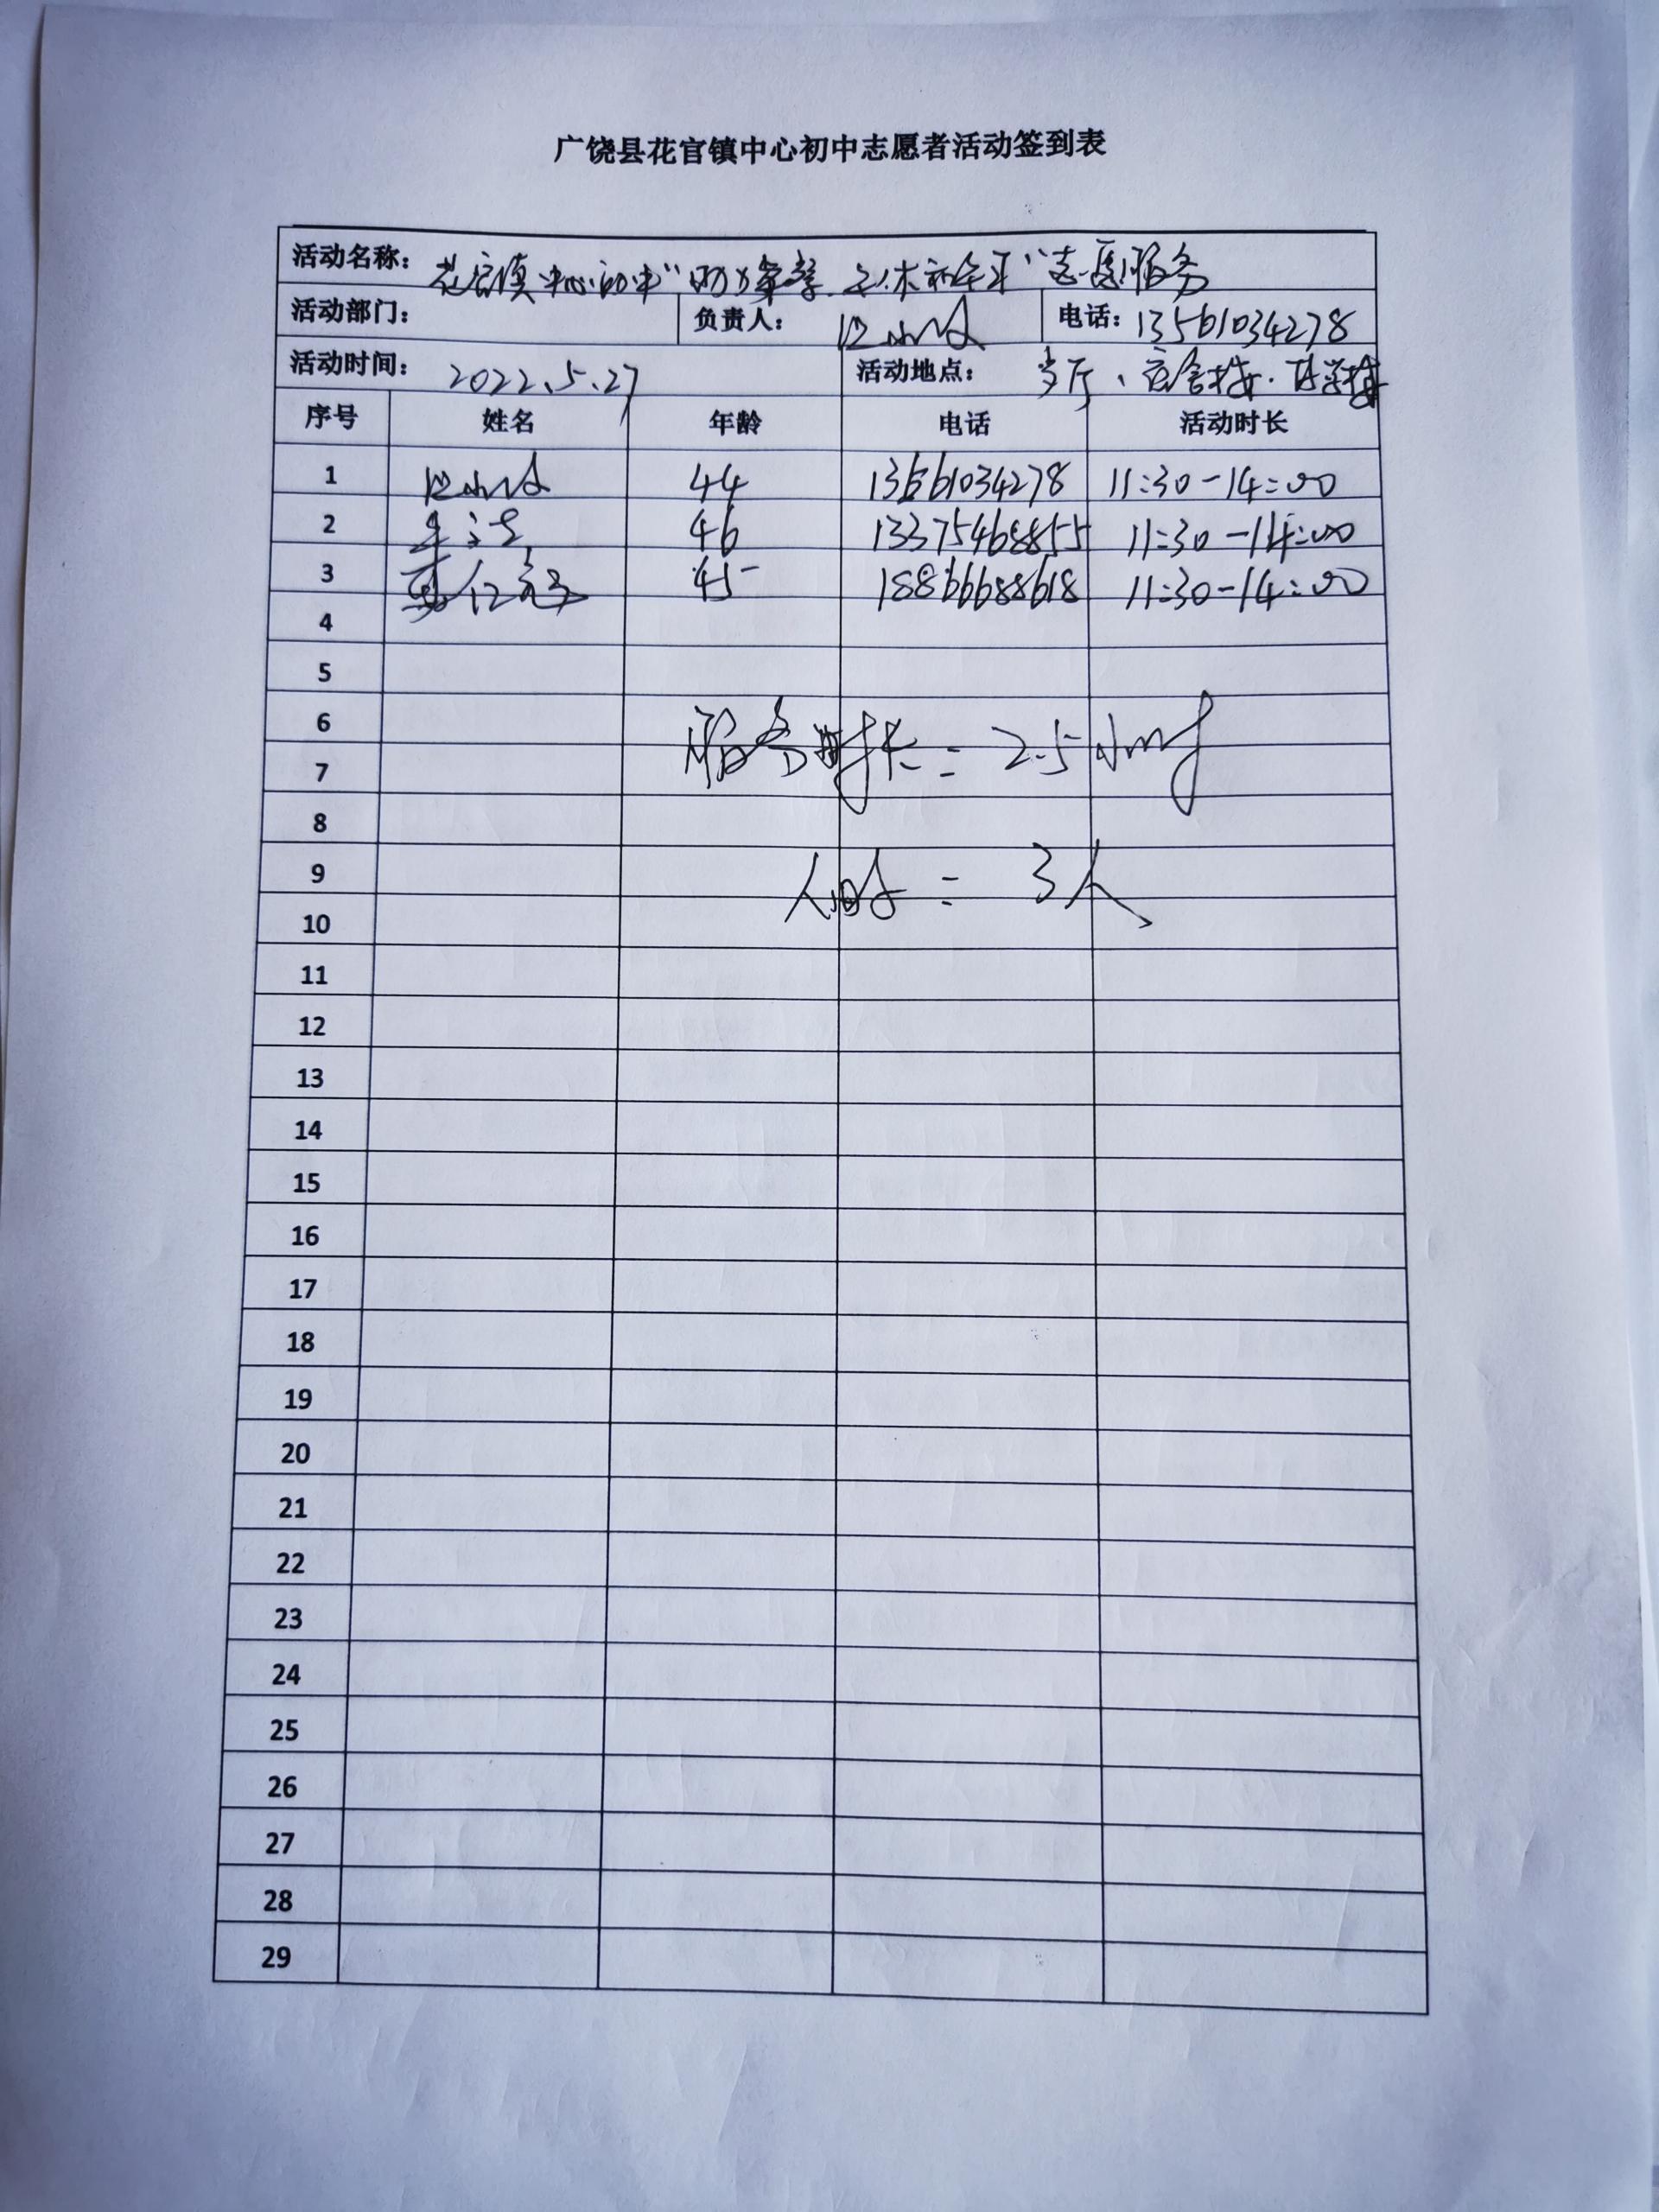 广饶县花官镇中心初中志愿者活动签到表
活动名称: 花官镇中心初中"助力 志愿服务
活动部门: 负责人: 电话: 13561034278
活动时间: 2022.5.27 活动地点: 宿舍楼.
序号 姓名 年龄 电话 活动时长
1 44 13561034278 11:30-14:00
2 46 13375468855 11:30-14:00
3 45 18866688618 11:30-14:00
4
5
6
服务时长: 2.5小时
7
8
9
人员: 3人
10
11
12
13
14
15
16
17
18
19
20
21
22
23
24
25
26
27
28
29